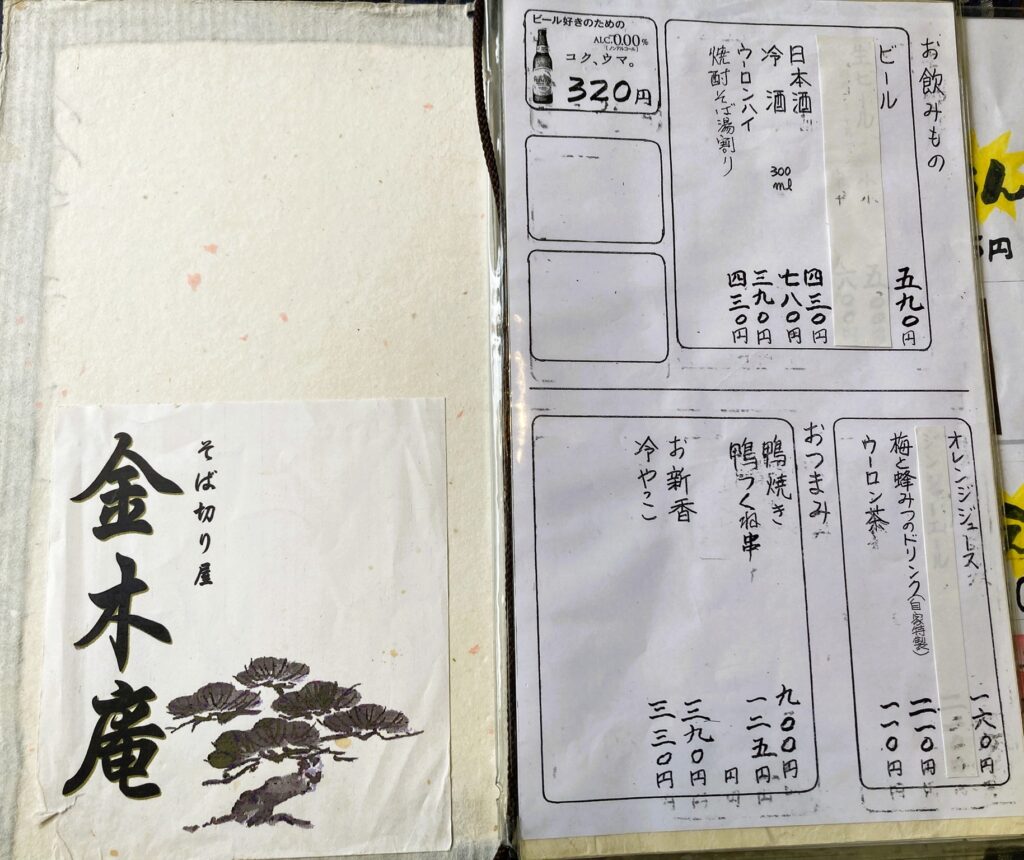 そば切り屋
金木庵
お飲みもの
ビール 五九〇円
日本酒 四三〇円
冷酒 300ml 七八〇円
ウーロンハイ 三九〇円
焼酎そば湯割り 四三〇円
ビール好きのための
ALC.0.00%
(ノンアルコール)
コク、ウマ。
320円
オレンジジュース 一六〇円
梅と蜂みつのドリンク(自家特製) 二一〇円
ウーロン茶 一一〇円
おつまみ
鴨焼き 九〇〇円
鴨つくね串 一二五円
円
お新香 三九〇円
冷やっこ 三三〇円
ん
円